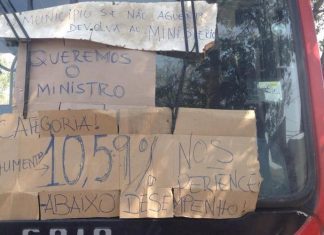 MUNICÍPIO SE NÃO AGUENTA
DEVOLVA AO MINISTÉRIO
QUEREMOS
O
MINISTRO
CATEGORIA!
AUMENTO 10,59% NOS
PERTENCE
ABAIXO DESEMPENHO!